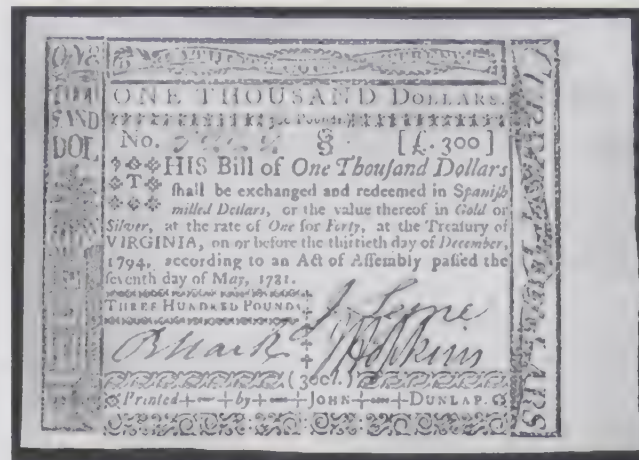 ONE
THOU
SAND
DOL
ONE THOUSAND DOLLARS.
No. § [£.300]
THIS Bill of One Thouſand Dollars
ſhall be exchanged and redeemed in Spaniſh
milled Dollars, or the value thereof in Gold or
Silver, at the rate of One for Forty, at the Treaſury of
VIRGINIA, on or before the thirtieth day of December,
1794, according to an Act of Aſſembly paſſed the
ſeventh day of May, 1781.
THREE HUNDRED POUNDS
J Lyne
B Stark J Hopkins
(300l.)
Printed by JOHN DUNLAP.